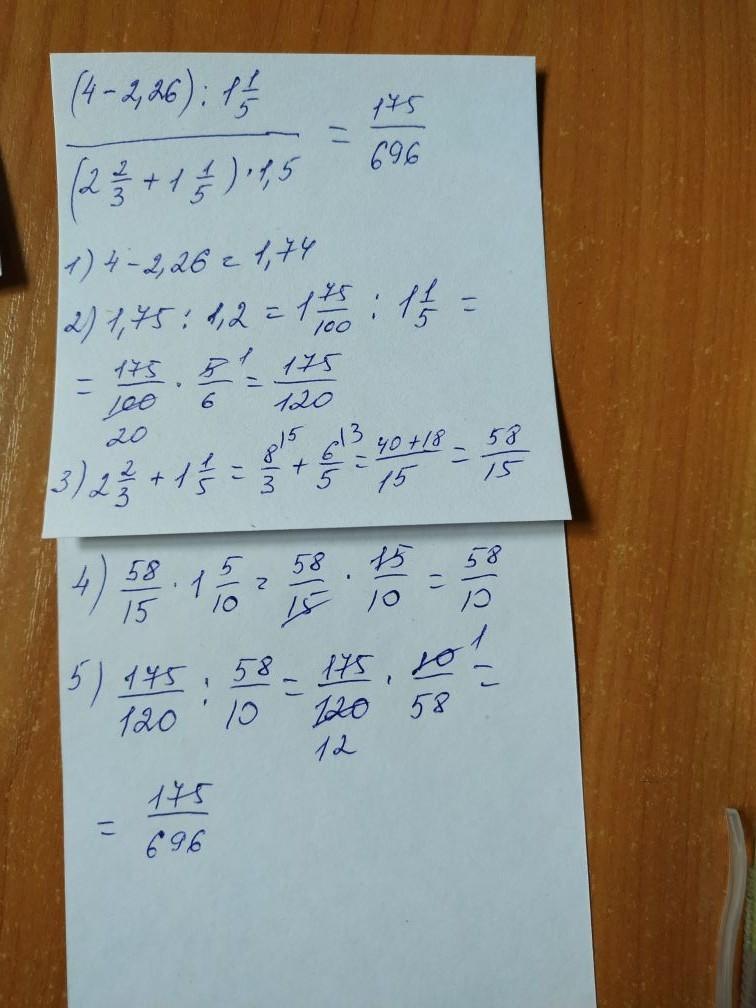 (4-2,26) : 1 1/5
(2 2/3 + 1 1/5) · 1,5
= 175/696
1) 4-2,26 = 1,74
2) 1,75 : 1,2 = 1 75/100 : 1 1/5 =
= 175/100 · 5/6 1 = 175/120
20
3) 2 2/3 + 1 1/5 = 8/3 15 + 6/5 13 = 40+18/15 = 58/15
4) 58/15 · 1 5/10 = 58/15 · 15/10 = 58/10
5) 175/120 : 58/10 = 175/120 · 10/58 1 =
12
= 175/696